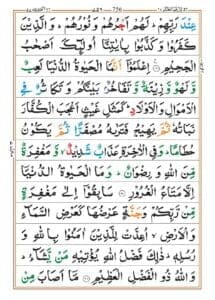 عِنْدَ رَبِّهِمْ لَهُمْ اَجْرُهُمْ وَنُوْرُهُمْ وَالَّذِيْنَ
كَفَرُوْا وَكَذَّبُوْا بِاٰيٰتِنَاۤ اُولٰٓئِكَ اَصْحٰبُ
الْجَحِيْمِ اِعْلَمُوْۤا اَنَّمَا الْحَيٰوةُ الدُّنْيَا لَعِبٌ
وَّلَهْوٌ وَّزِيْنَةٌ وَّتَفَاخُرٌۢ بَيْنَكُمْ وَتَكَاثُرٌ فِى
الْاَمْوَالِ وَالْاَوْلَادِ كَمَثَلِ غَيْثٍ اَعْجَبَ الْكُفَّارَ
نَبَاتُهٗ ثُمَّ يَهِيْجُ فَتَرٰىهُ مُصْفَرًّا ثُمَّ يَكُوْنُ
حُطَامًا وَفِى الْاٰخِرَةِ عَذَابٌ شَدِيْدٌ وَّمَغْفِرَةٌ
مِّنَ اللّٰهِ وَرِضْوَانٌ وَمَا الْحَيٰوةُ الدُّنْيَاۤ
اِلَّا مَتَاعُ الْغُرُوْرِ سَابِقُوْۤا اِلٰى مَغْفِرَةٍ
مِّنْ رَّبِّكُمْ وَجَنَّةٍ عَرْضُهَا كَعَرْضِ السَّمَآءِ
وَالْاَرْضِ اُعِدَّتْ لِلَّذِيْنَ اٰمَنُوْا بِاللّٰهِ وَ
رُسُلِهٖ ذٰلِكَ فَضْلُ اللّٰهِ يُؤْتِيْهِ مَنْ يَّشَآءُ
وَاللّٰهُ ذُو الْفَضْلِ الْعَظِيْمِ مَاۤ اَصَابَ مِنْ